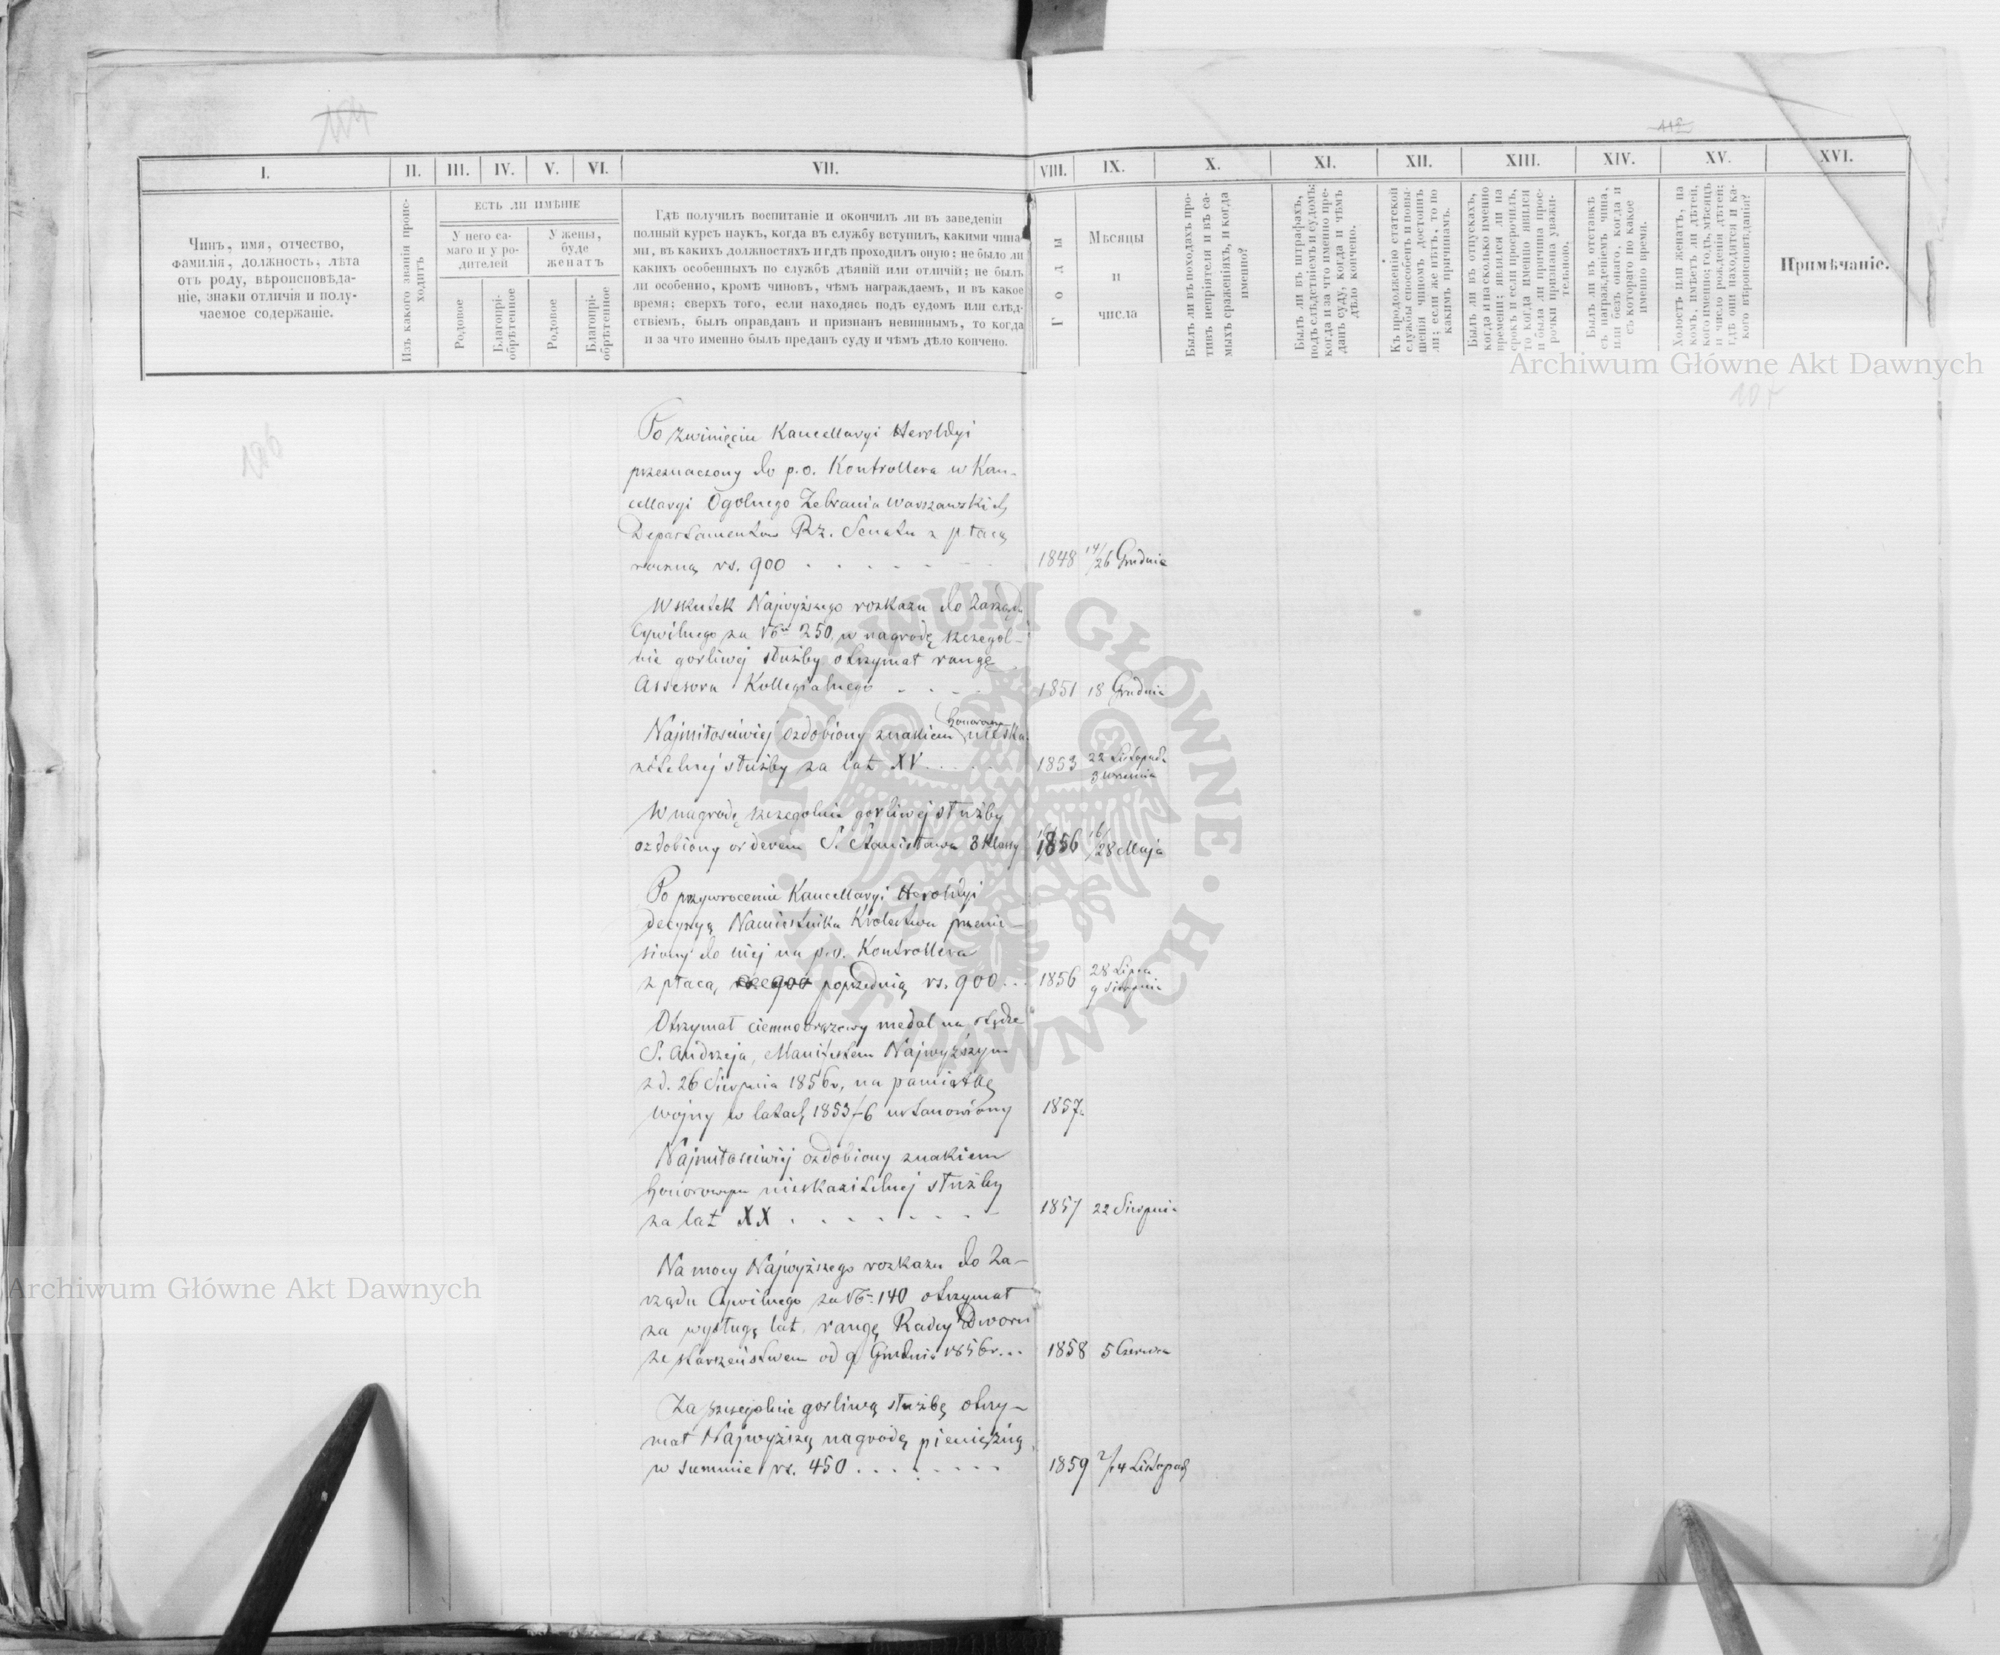 154
112
I.
II.
III.
IV.
V.
VI.
VII.
VIII.
IX.
X.
XI.
XII.
XIII.
XIV.
XV.
XVI.
Чинъ, имя, отчество,
фамилія, должность, лѣта
отъ роду, вѣроисповѣда-
ніе, знаки отличія и полу-
чаемое содержаніе.
Изъ какого званія проис-
ходитъ
ЕСТЬ ЛИ ИМѢНІЕ
У него са-
маго и у ро-
дителей
У жены,
буде
женатъ
Родовое
Благопрі-
обрѣтенное
Родовое
Благопрі-
обрѣтенное
Гдѣ получилъ воспитаніе и окончилъ ли въ заведеніи
полный курсъ наукъ, когда въ службу вступилъ, какими чина-
ми, въ какихъ должностяхъ и гдѣ проходилъ оную; не было ли
какихъ особенныхъ по службѣ дѣяній или отличій; не былъ
ли особенно, кромѣ чиновъ, чѣмъ награждаемъ, и въ какое
время; сверхъ того, если находясь подъ судомъ или слѣд-
ствіемъ, былъ оправданъ и признанъ невиннымъ, то когда
и за что именно былъ преданъ суду и чѣмъ дѣло кончено.
Годы
Мѣсяцы
и
числа
Былъ ли въ походахъ про-
тивъ непріятеля и въ са-
мыхъ сраженіяхъ, и когда
именно?
Былъ ли въ штрафахъ,
подъ слѣдствіемъ и судомъ;
когда и за что именно пре-
данъ суду, когда и чѣмъ
дѣло кончено.
Къ продолженію статской
службы способенъ и повы-
шенія чиномъ достоинъ
ли; если же нѣтъ, то по
какимъ причинамъ.
Былъ ли въ отпускахъ,
когда и насколько именно
времени; явился ли на
срокъ и если просрочилъ,
то когда именно явился
и была ли причина прос-
рочки признана уважи-
тельною.
Былъ ли въ отставкѣ
съ награжденіемъ чина,
или безъ онаго, когда и
съ котораго по какое
именно время.
Холостъ или женатъ, на
комъ, имѣетъ ли дѣтей,
кого именно; годъ, мѣсяцъ
и число рожденія дѣтей;
гдѣ они находятся и ка-
кого вѣроисповѣданія?
Примѣчаніе.
Archiwum Główne Akt Dawnych
107
126
Po zwinięciu Kancellaryi Heroldyi
przeznaczony do p.o. Kontrollera w Kan-
cellaryi Ogolnego Zebrania Warszawskich
Departamentow Rz. Senatu z płacą
roczną rs. 900 1848 14/26 Grudnia
Wskutek Najwyższego rozkazu do Zarządu
Cywilnego za № 250, w nagrodę szczegól-
nie gorliwej służby otrzymał rangę
Assesora Kollegialnego 1851 18 Grudnia
Najmiłościwiej ozdobiony znakiem honorowym nieska-
zitelnej służby za lat XV 1853 22 Listopada
3 Września
W nagrodę szczegolnie gorliwej służby
ozdobiony orderem S. Stanisława 3 klassy 1856 16/28 Maja
Po przywroceniu Kancellaryi Heroldyi
decyzyą Namiestnika Krolestwa przenie-
siony do niej na p.o. Kontrollera
z płacą rs. 900 poprzednią rs. 900 1856 28 Lipca
9 Sierpnia
Otrzymał ciemnobrązowy medal na wstędze
S. Andrzeja, Manifestem Najwyższym
z d. 26 Sierpnia 1856 r. na pamiątkę
wojny w latach 1853/6 ustanowiony 1857.
Najmiłościwiej ozdobiony znakiem
honorowym nieskazitelnej służby
za lat XX 1857 22 Sierpnia
Na mocy Najwyższego rozkazu do Za-
rządu Cywilnego za № 140 otrzymał
za wysługę lat, rangę Radcy Dworu
ze starszeństwem od 9 Grudnia 1856 r. 1858 5 Czerwca
Za szczegolnie gorliwą służbę otrzy-
mał Najwyższą nagrodę pieniężną
w summie rs. 450 1859 2/14 Listopada
ARCHIWUM GŁÓWNE AKT DAWNYCH
Archiwum Główne Akt Dawnych